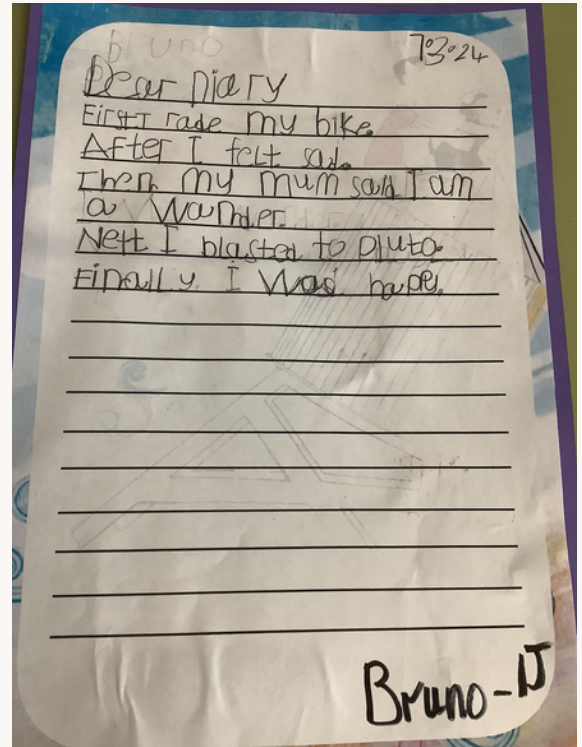 bruno
7.3.24
Dear Diary
First I rade my bike.
After I felt sad.
Then my mum said I am
a Wander.
Neft I blasted to pluto.
Finally I was hapey.
Bruno-IJ